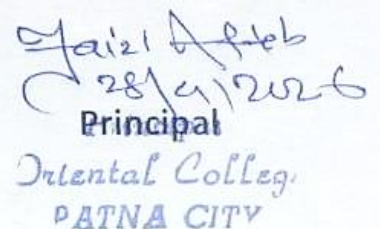 Faizi Aftab
28/4/2026
Principal
Oriental College
PATNA CITY